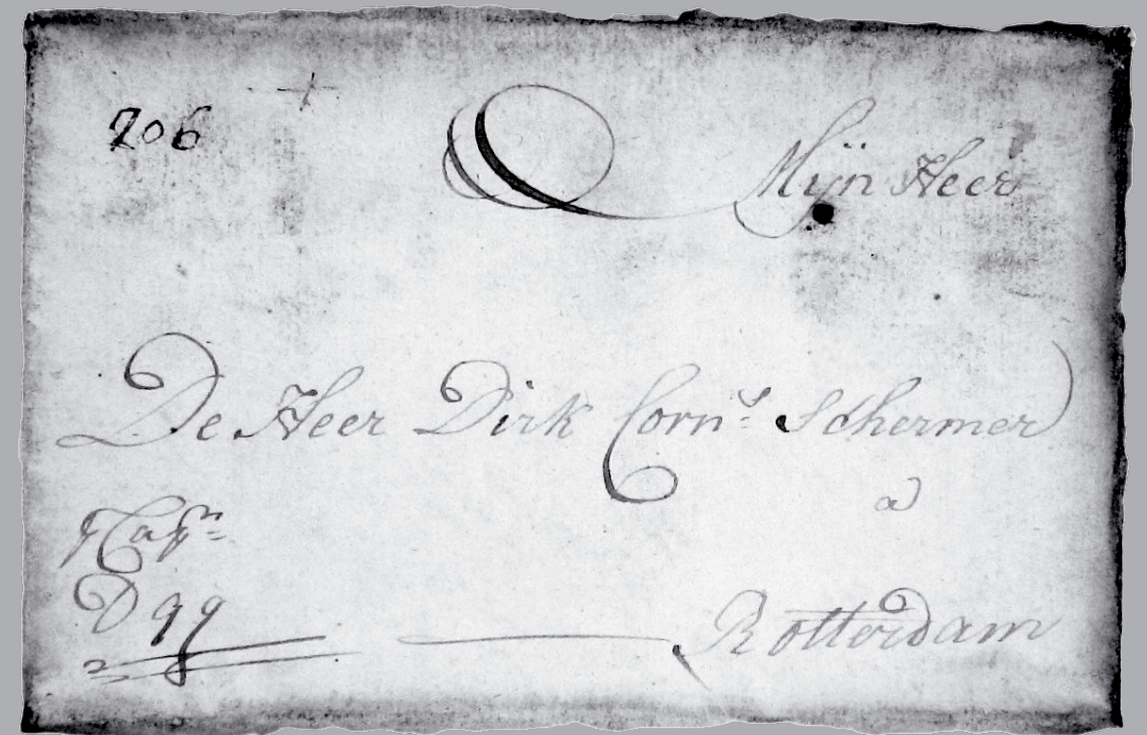 206
Mijn Heer
De Heer Dirk Corn.s Schermer
a
Capn
Rotterdam